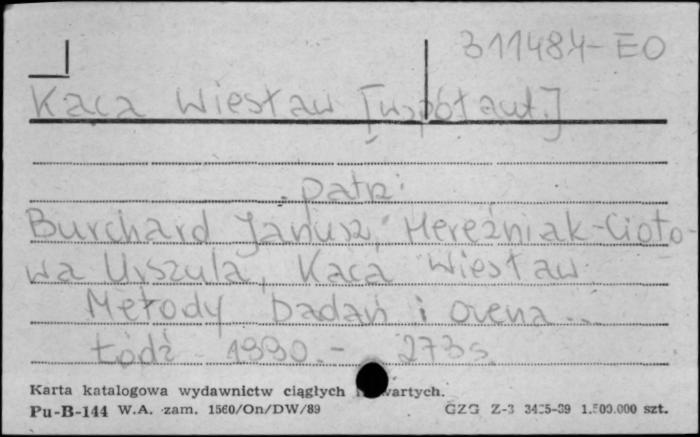 311484-EO
Kaca Wiesław [współaut.]
patrz:
Burchard Janusz, Mereźniak-Cioto-
wa Urszula, Kaca Wiesław
Metody badań i ocena...
Łódź 1990.- 273 s.
Karta katalogowa wydawnictw ciągłych
Pu-B-144 W.A. zam. 1560/On/DW/89 GZG Z-3 1.500.000 szt.